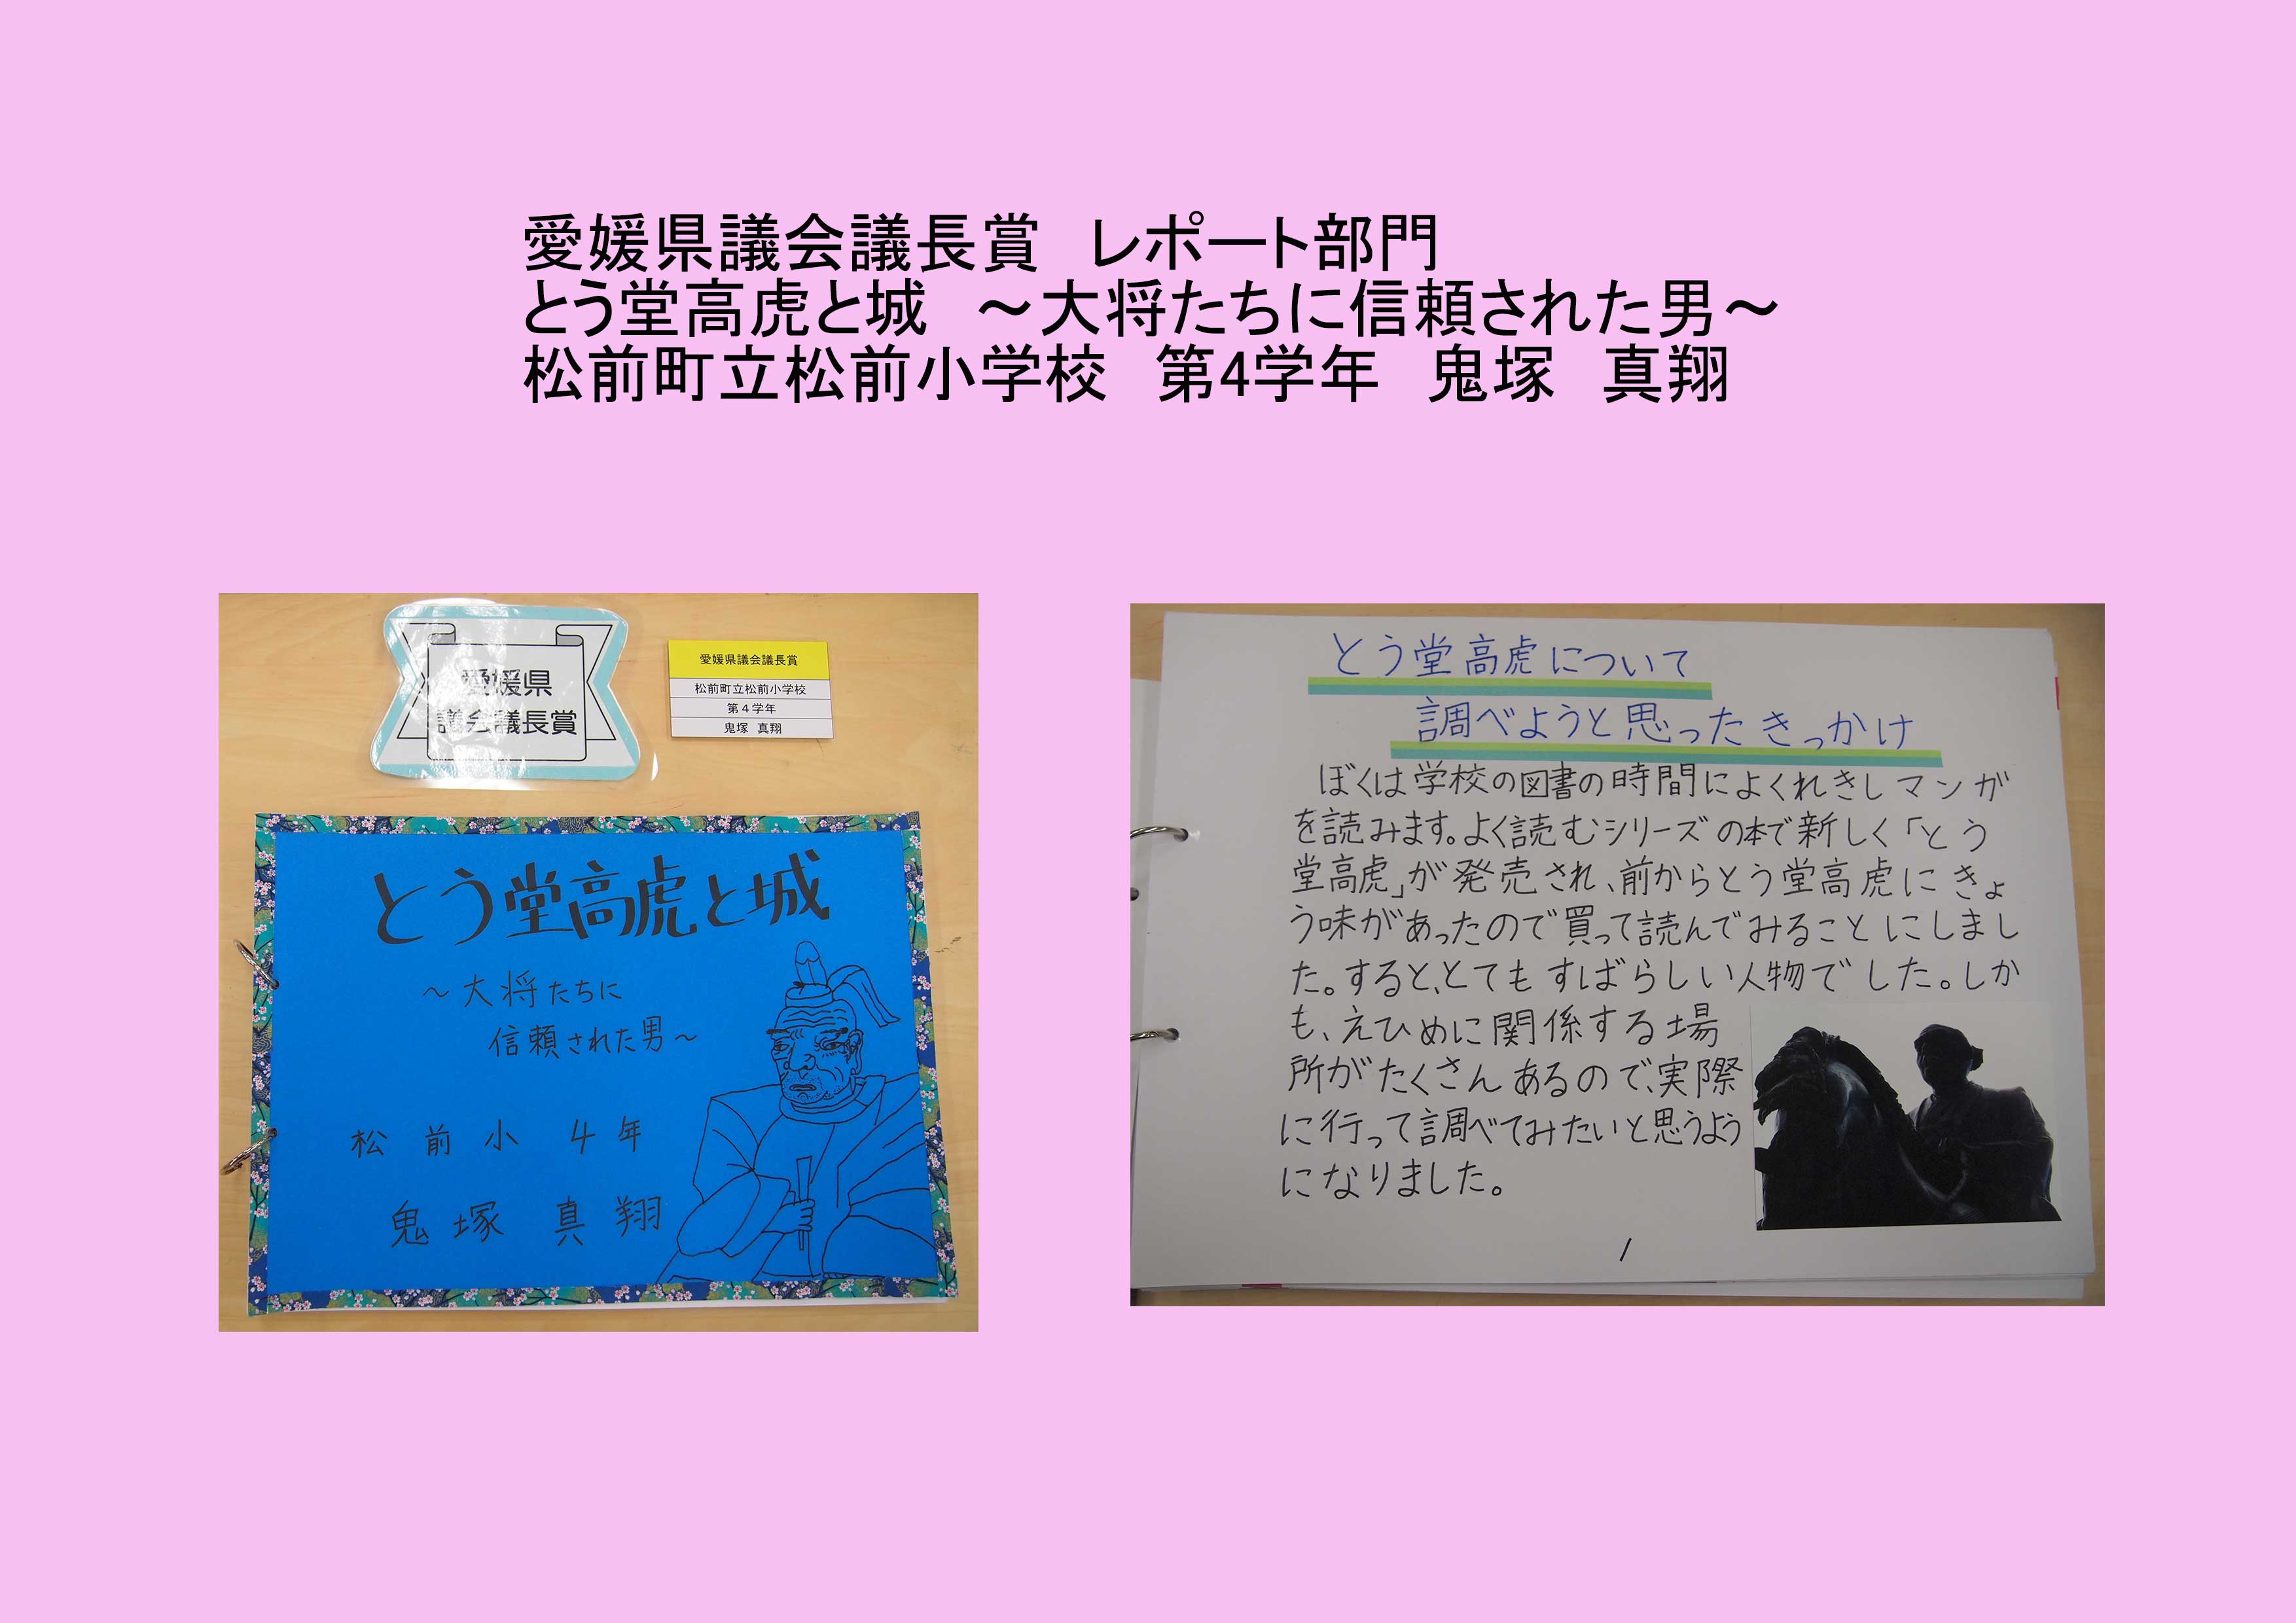 愛媛県議会議長賞　レポート部門
とう堂高虎と城　～大将たちに信頼された男～
松前町立松前小学校　第4学年　鬼塚　真翔
愛媛県
議会議長賞
愛媛県議会議長賞
松前町立松前小学校
第４学年
鬼塚　真翔
とう堂高虎と城
～大将たちに
信頼された男～
松前小 4年
鬼塚　真翔
とう堂高虎について
調べようと思ったきっかけ
ぼくは学校の図書の時間によくれきしマンガ
を読みます。よく読むシリーズの本で新しく「とう
堂高虎」が発売され、前からとう堂高虎にきょ
う味があったので買って読んでみることにしまし
た。すると、とてもすばらしい人物でした。しか
も、えひめに関係する場
所がたくさんあるので、実際
に行って調べてみたいと思うよう
になりました。
1